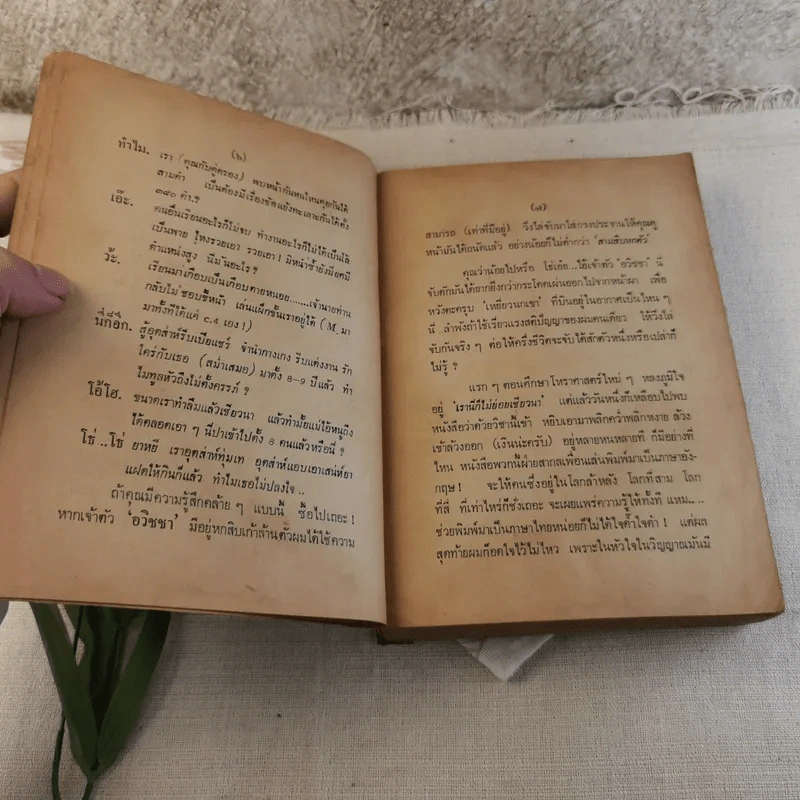 (๖)
ทำไม. เรา (คุณกับคู่ครอง) พบหน้ากันหนไหนคุยกันได้
สามคำ เป็นต้องมีเรื่องขัดแย้งทะเลาะกันได้ตั้ง
๓๘๐ คำ.?
เอ๊ะ. คนอื่นเรียนอะไรก็ไม่จบ ทำงานอะไรก็ไม่ได้เป็นโล้
เป็นพาย ไหงรวยเอา รวยเอา! มิหน้าซ้ำยังมียศมี
ตำแหน่งสูง นี่มันอะไร?
ว๊ะ. เรียนมาเกือบเป็นเกือบตายหนอย.......เจ้านายท่าน
กลับไม่ชอบขี้หน้า เล่นแผ็กชั้นเราอยู่ได้ (M. มา
มาทั้งทีได้แค่ c.4 เอง!)
นี่ก็อีก. สู้อุตส่าห์รีบเบี่ยแชร์ จำนำกางเกง รีบแต่งงาน รัก
ใคร่กับเธอ (สม่ำเสมอ) มาตั้ง 8-9 ปีแล้ว ทำ
ไมทูลหัวถึงไม่ตั้งครรภ์ ?
โอ้โฮ. ขนาดเราทำลืมแล้วเชียวนา แล้วทำมั้ยแม่ไอ้หนูถึง
ได้คลอดเอา ๆ นี่ปาเข้าไปตั้ง 8 คนแล้วหรือนี่ ?
โช่...โช่ ยาหยี เราอุตส่าห์ทุ่มเท อุตส่าห์แอบเอาเสน่ห์ยา
แฝดให้กินก็แล้ว ทำไมเธอไม่ปลงใจ..
ถ้าคุณมีความรู้สึกคล้าย ๆ แบบนี้ ซื้อไปเถอะ!
หากเจ้าตัว ‘อวิชชา’ มีอยู่หกสิบเก้าล้านตัวผมได้ใช้ความ
(๗)
สามารถ (เท่าที่มีอยู่) วิ่งไล่จับมาใส่กรงประชานให้คุณดู
หน้ามันได้ถนัดแล้ว อย่างน้อยก็ไม่ต่ำกว่า ‘สามสิบหกตัว’
คุณว่าน้อยไปหรือ โช่เอ๋ย...ไอ้เจ้าตัว ‘อวิชชา’ นี่
จับตักมันได้ยากยิ่งกว่ากระโดดเผ่นออกไปจากหน้าผา เพื่อ
หวังตะครุบ ‘เหยี่ยวนกเขา’ ที่บินอยู่ในอากาศเป็นไหน ๆ
นี่..ลำพังถ้าใช้เรี่ยวแรงสติปัญญาของผมคนเดียว ให้วิ่งไล่
จับกันจริง ๆ ต่อให้ครึ่งชีวิตจะจับได้สักตัวหนึ่งหรือเปล่าก็
ไม่รู้ ?
แรก ๆ ตอนศึกษาโหราศาสตร์ใหม่ ๆ หลงภูมิใจ
อยู่ ‘เรานี่ก็ไม่ย่อยเชียวนา’ แต่แล้ววันหนึ่งก็เหลือบไปพบ
หนังสือว่าด้วยวิชานี้เข้า หยิบเอามาพลิกคว่ำพลิกหงาย ล้วง
เข้าล้วงออก (เงินน่ะครับ) อยู่หลายหนหลายที ก็มีอย่างที่
ไหน หนังสือพวกนี้ฝ่ายสากลเพื่อนเล่นพิมพ์มาเป็นภาษาอัง-
กฤษ! จะให้คนซึ่งอยู่ในโลกล้าหลัง โลกที่สาม โลก
ที่สี่ ที่เท่าไหร่ก็ชั่งเถอะ จะเผยแพร่ความรู้ให้ทั้งที แหม....
ช่วยพิมพ์มาเป็นภาษาไทยหน่อยก็ไม่ได้ใจค้ำใจดำ! แต่ผล
สุดท้ายผมก็อดใจไว้ไม่ไหว เพราะในหัวใจในวิญญาณมันมี